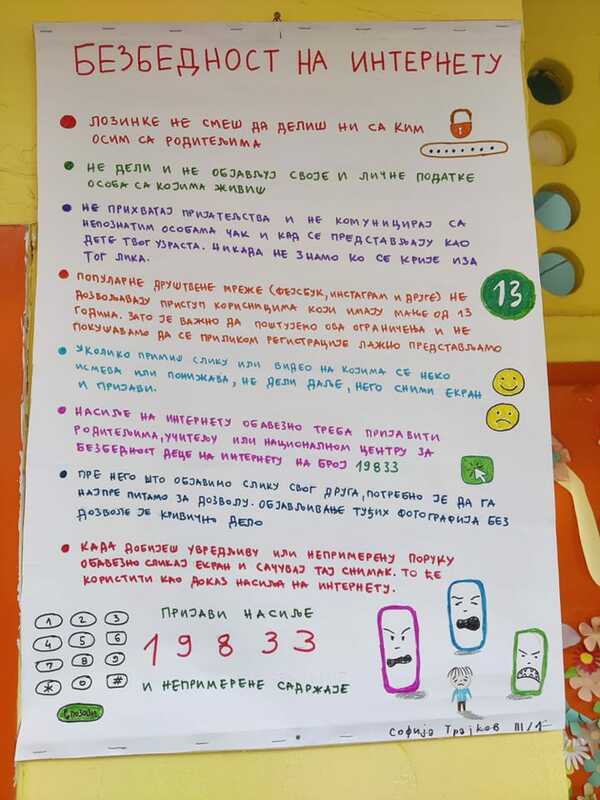 БЕЗБЕДНОСТ НА ИНТЕРНЕТУ
ЛОЗИНКЕ НЕ СМЕШ ДА ДЕЛИШ НИ СА КИМ
ОСИМ СА РОДИТЕЉИМА
НЕ ДЕЛИ И НЕ ОБЈАВЉУЈ СВОЈЕ И ЛИЧНЕ ПОДАТКЕ
ОСОБА СА КОЈИМА ЖИВИШ
НЕ ПРИХВАТАЈ ПРИЈАТЕЉСТВА И НЕ КОМУНИЦИРАЈ СА
НЕПОЗНАТИМ ОСОБАМА ЧАК И КАД СЕ ПРЕДСТАВЉАЈУ КАО
ДЕТЕ ТВОГ УЗРАСТА. НИКАДА НЕ ЗНАМО КО СЕ КРИЈЕ ИЗА
ТОГ ЛИКА.
ПОПУЛАРНЕ ДРУШТВЕНЕ МРЕЖЕ (ФЕЈСБУК, ИНСТАГРАМ И ДРУГЕ) НЕ
ДОЗВОЉАВАЈУ ПРИСТУП КОРИСНИЦИМА КОЈИ ИМАЈУ МАЊЕ ОД 13
ГОДИНА. ЗАТО ЈЕ ВАЖНО ДА ПОШТУЈЕМО ОВА ОГРАНИЧЕЊА И НЕ
ПОКУШАВАМО ДА СЕ ПРИЛИКОМ РЕГИСТРАЦИЈЕ ЛАЖНО ПРЕДСТАВЉАМО
13
УКОЛИКО ПРИМИШ СЛИКУ ИЛИ ВИДЕО НА КОЈИМА СЕ НЕКО
ИСМЕВА ИЛИ ПОНИЖАВА, НЕ ДЕЛИ ДАЉЕ, НЕГО СНИМИ ЕКРАН
И ПРИЈАВИ.
НАСИЉЕ НА ИНТЕРНЕТУ ОБАВЕЗНО ТРЕБА ПРИЈАВИТИ
РОДИТЕЉИМА, УЧИТЕЉУ ИЛИ НАЦИОНАЛНОМ ЦЕНТРУ ЗА
БЕЗБЕДНОСТ ДЕЦЕ НА ИНТЕРНЕТУ НА БРОЈ 19833
ПРЕ НЕГО ШТО ОБЈАВИМО СЛИКУ СВОГ ДРУГА, ПОТРЕБНО ЈЕ ДА ГА
НАЈПРЕ ПИТАМО ЗА ДОЗВОЛУ. ОБЈАВЉИВАЊЕ ТУЂИХ ФОТОГРАФИЈА БЕЗ
ДОЗВОЛЕ ЈЕ КРИВИЧНО ДЕЛО
КАДА ДОБИЈЕШ УВРЕДЉИВУ ИЛИ НЕПРИМЕРЕНУ ПОРУКУ
ОБАВЕЗНО СЛИКАЈ ЕКРАН И САЧУВАЈ ТАЈ СНИМАК. ТО ЋЕ
КОРИСТИТИ КАО ДОКАЗ НАСИЉА НА ИНТЕРНЕТУ.
1 2 3
4 5 6
7 8 9
* 0 #
ПОЗОВИ
ПРИЈАВИ НАСИЉЕ
19833
И НЕПРИМЕРЕНЕ САДРЖАЈЕ
Софија Трајков III/1